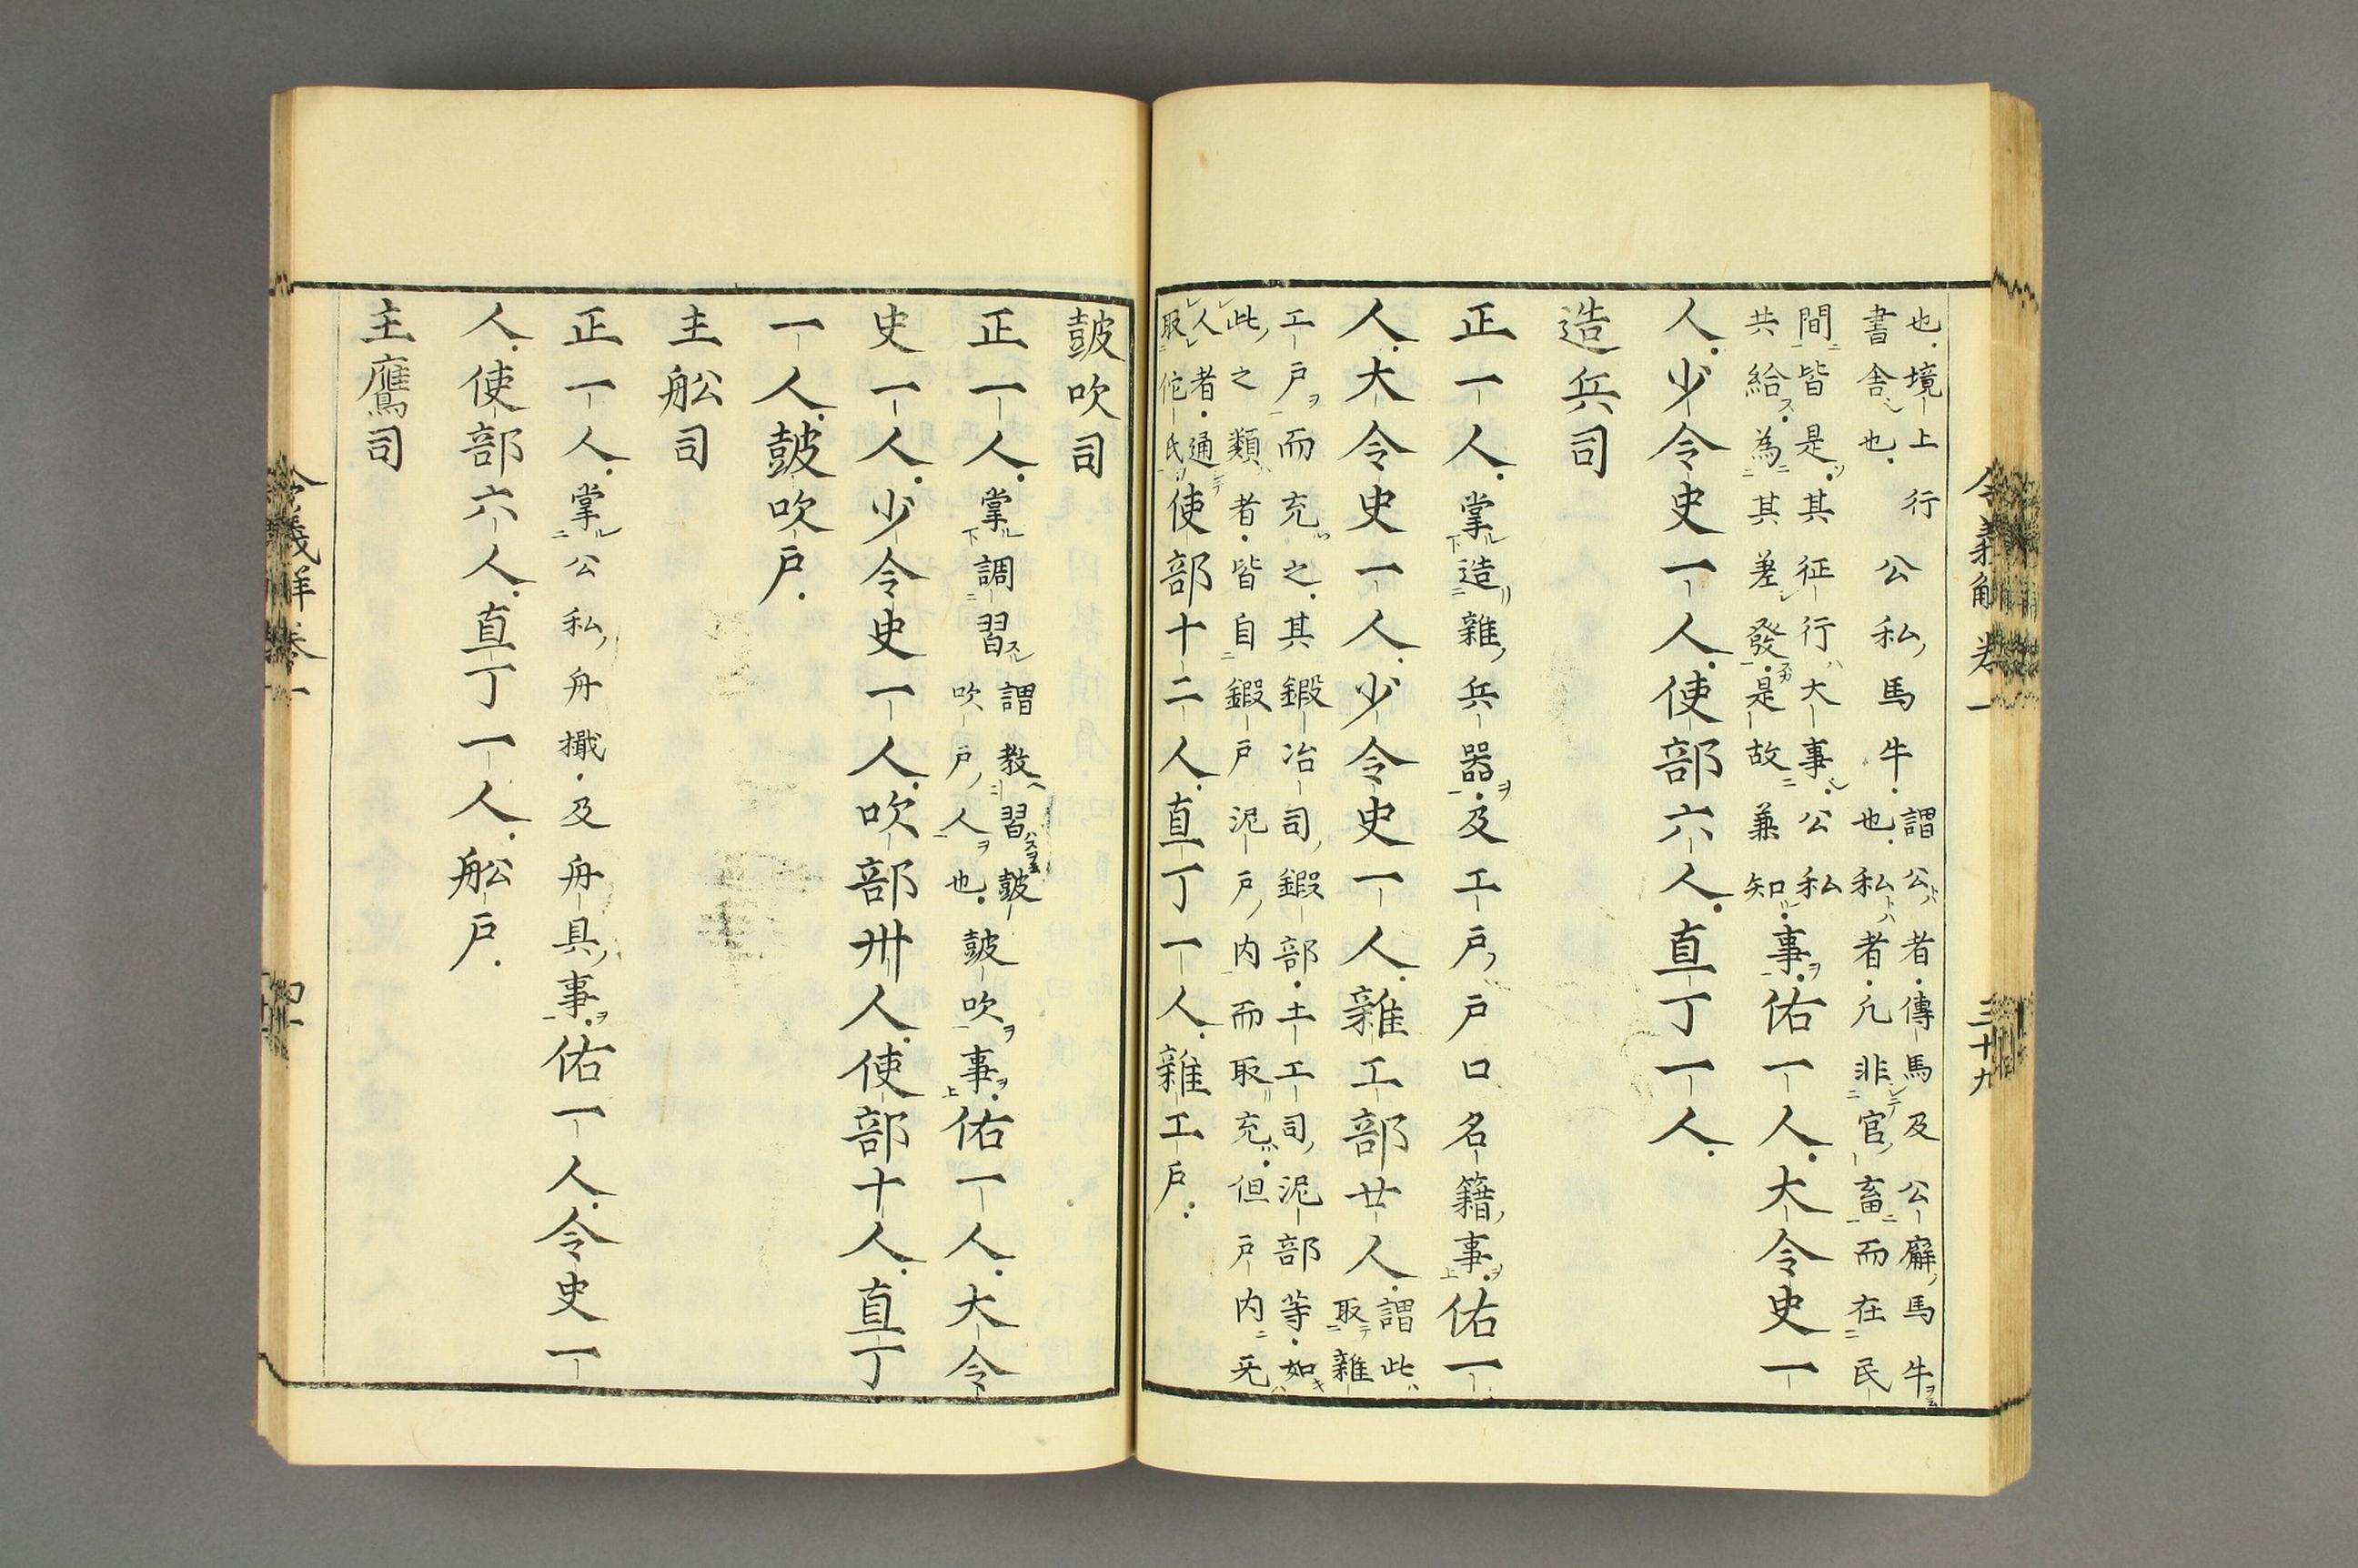 令義解卷一 三十九
也。境上行
書舎也。
公私馬牛。
謂公者。傳馬及公廨馬牛
也。私者。凡非官畜而在民
間皆是。其征行大事。公私
共給。為其差發。是故兼知。
事。佑一人。大令史一
人。少令史一人。使部六人。直丁一人。
造兵司
正一人。掌造雜兵器。及工戸戸口名籍事。佑一
人。大令史一人。少令史一人。雜工部廿人。
謂此
取雜
工戸而充之。其鍜冶司鍜部。土工司泥部等。如
此之類者。皆自鍜戸泥戸内而取充。但戸内无
人者。通
取佗氏
使部十二人。直丁一人。雜工戸。
皷吹司
正一人。掌調習
謂教習皷
吹戸人也。
皷吹事。佑一人。大令
史一人。少令史一人。吹部卅人。使部十人。直丁
一人。皷吹戸。
主舩司
正一人。掌公私舟檝。及舟具事。佑一人。令史一
人。使部六人。直丁一人。舩戸。
主鷹司
令義解卷一